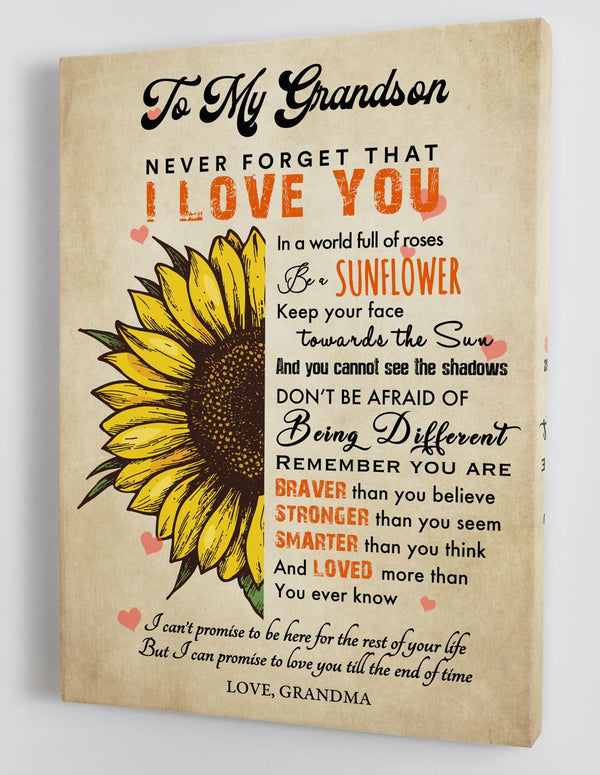 To My Grandson
NEVER FORGET THAT
I LOVE YOU
In a world full of roses
Be a SUNFLOWER
Keep your face
towards the Sun
And you cannot see the shadows
DON'T BE AFRAID OF
Being Different
REMEMBER YOU ARE
BRAVER than you believe
STRONGER than you seem
SMARTER than you think
And LOVED more than
You ever know
I can't promise to be here for the rest of your life
But I can promise to love you till the end of time
LOVE, GRANDMA